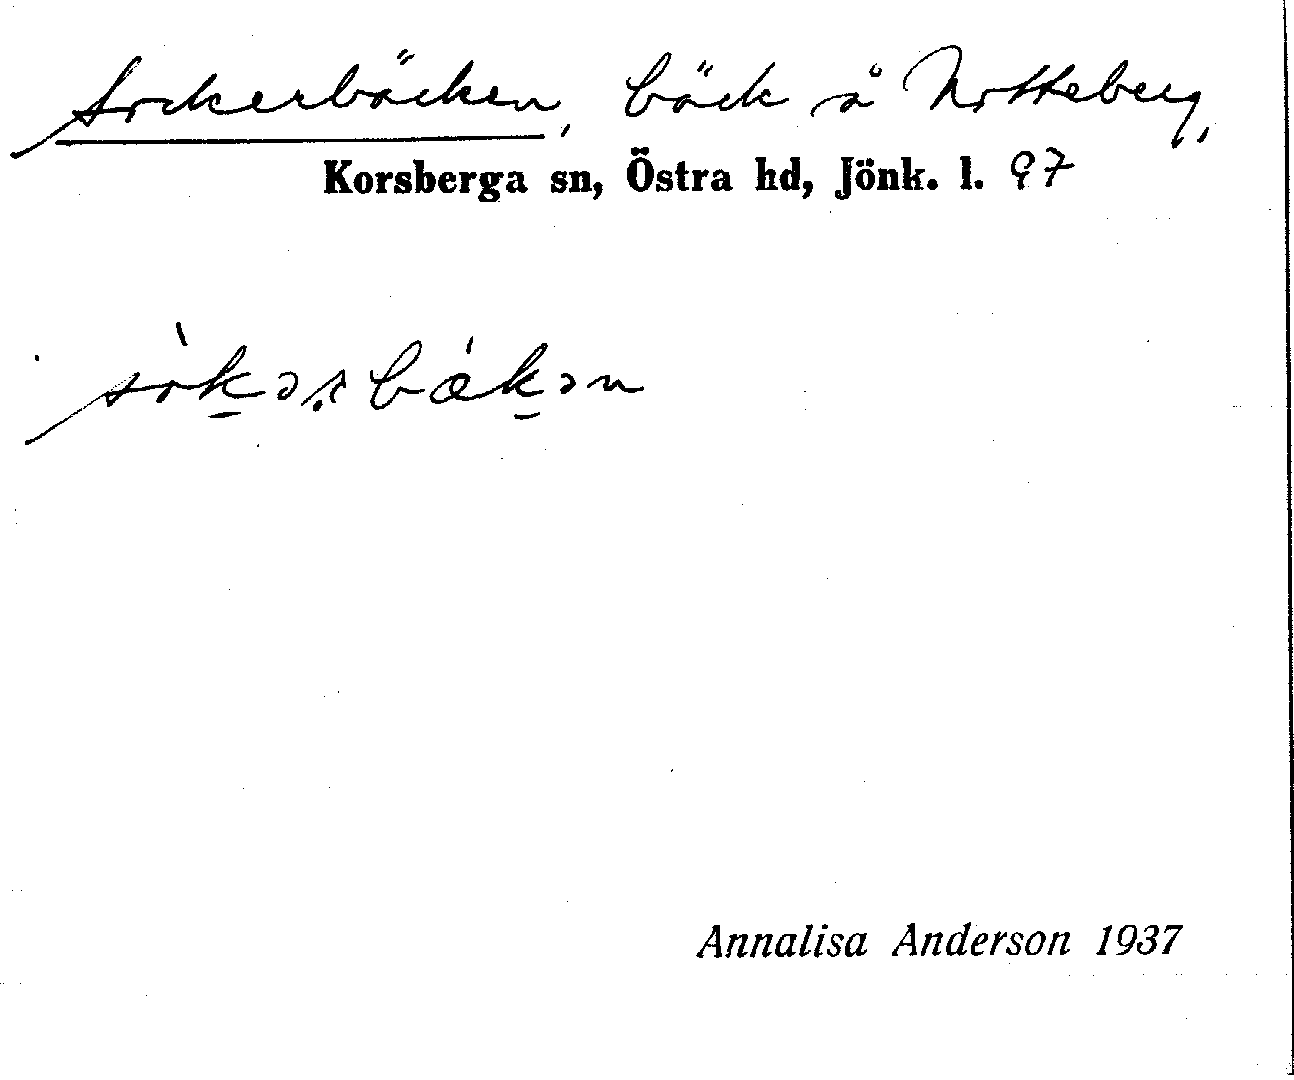 Sockerbäcken, bäck å Notteberg,
Korsberga sn, Östra hd, Jönk. l. 97
sòkərbǽkən
Annalisa Anderson 1937